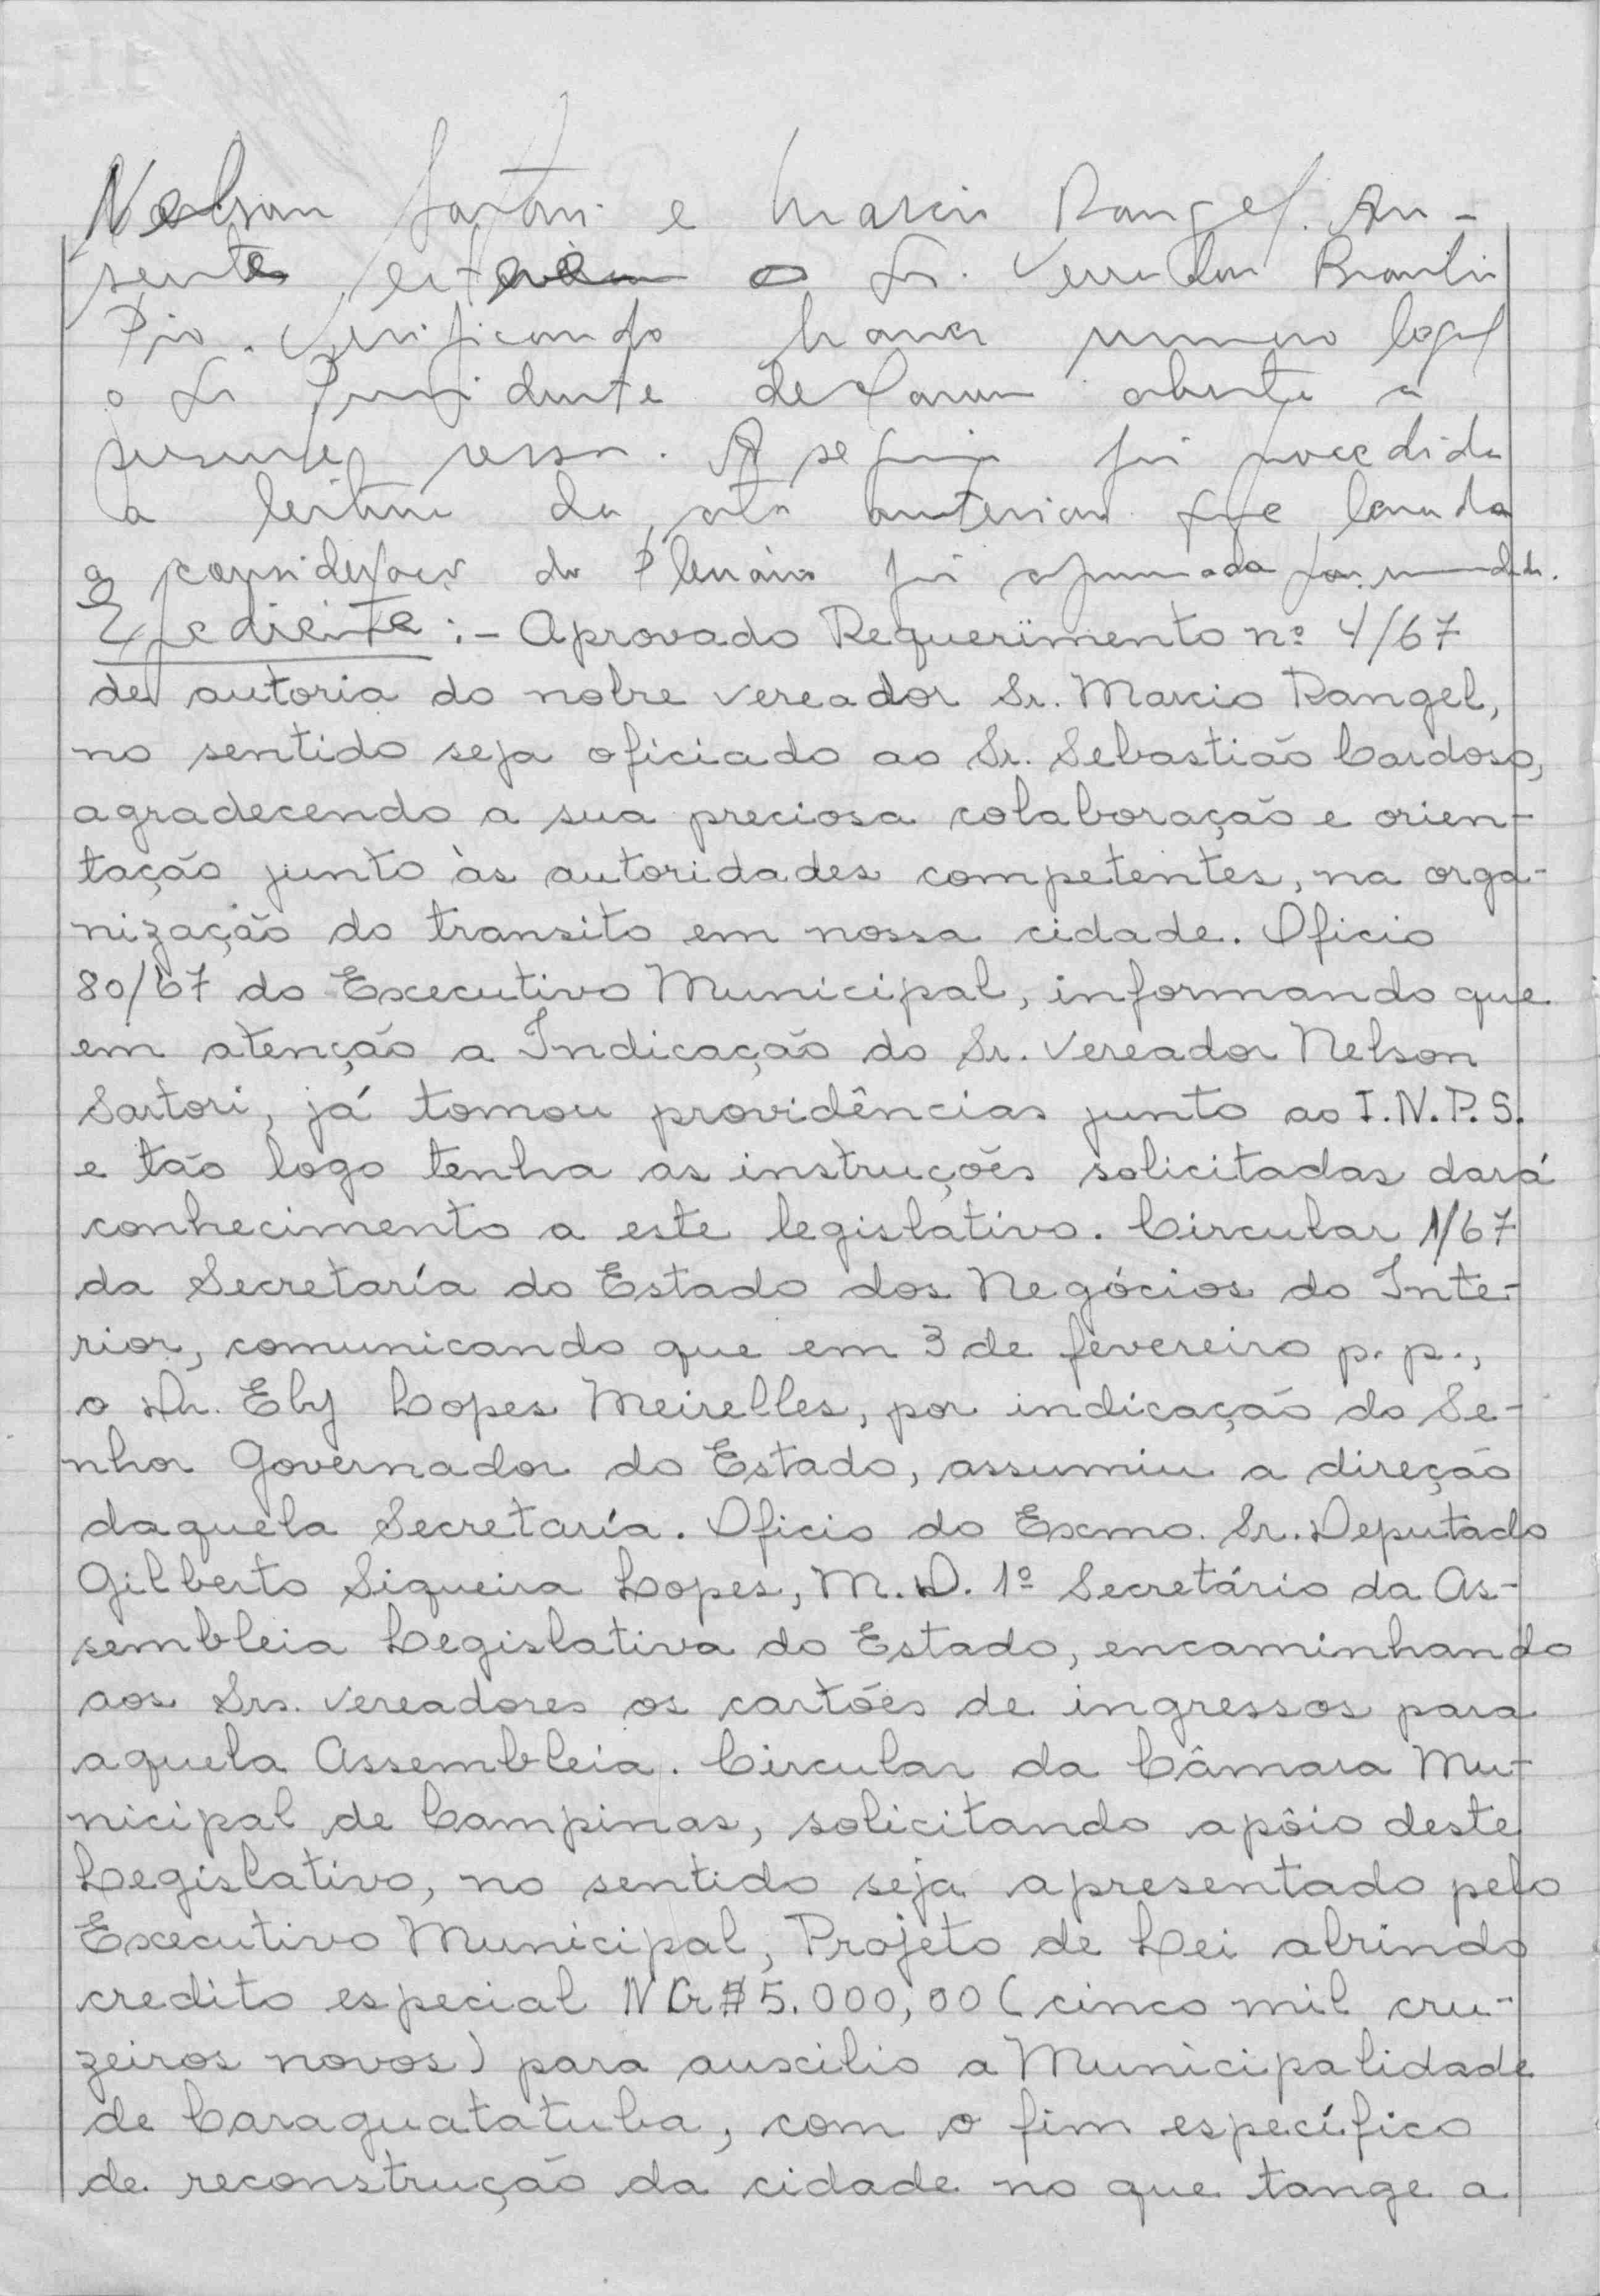 Nelson Sartori e Marcio Rangel. Au-
sente esteve o Sr. Vereador Brasilio
Pio. Verificando haver numero legal
o Sr Presidente declarou aberta a
presente sessão. A seguir foi procedida
a leitura da ata anterior que levada
a consideração do Plenário foi aprovada por unanimidade.
Expediente :- Aprovado Requerimento nº 4/67
de autoria do nobre vereador Sr. Marcio Rangel,
no sentido seja oficiado ao Sr. Sebastião Cardoso,
agradecendo a sua preciosa colaboração e orien-
tação junto às autoridades competentes, na orga-
nização do transito em nossa cidade. Oficio
80/67 do Executivo Municipal, informando que
em atenção a Indicação do Sr. Vereador Nelson
Sartori, já tomou providências junto ao I.N.P.S.
e tão logo tenha as instruções solicitadas dará
conhecimento a este legislativo. Circular 1/67
da Secretaría do Estado dos Negócios do Inte-
rior, comunicando que em 3 de fevereiro p. p.,
o Dr. Ely Lopes Meirelles, por indicação do Se-
nhor Governador do Estado, assumiu a direção
daquela Secretaría. Oficio do Exmo. Sr. Deputado
Gilberto Siqueira Lopes, M.D. 1º Secretário da As-
sembleia Legislativa do Estado, encaminhando
aos Srs. Vereadores os cartões de ingressos para
aquela Assembleia. Circular da Câmara Mu-
nicipal de Campinas, solicitando apôio deste
Legislativo, no sentido seja apresentado pelo
Executivo Municipal, Projeto de Lei abrindo
credito especial NCr$ 5.000,00 (cinco mil cru-
zeiros novos) para auxcilio a Municipalidade
de Caraguatatuba, com o fim específico
de reconstrução da cidade no que tange a